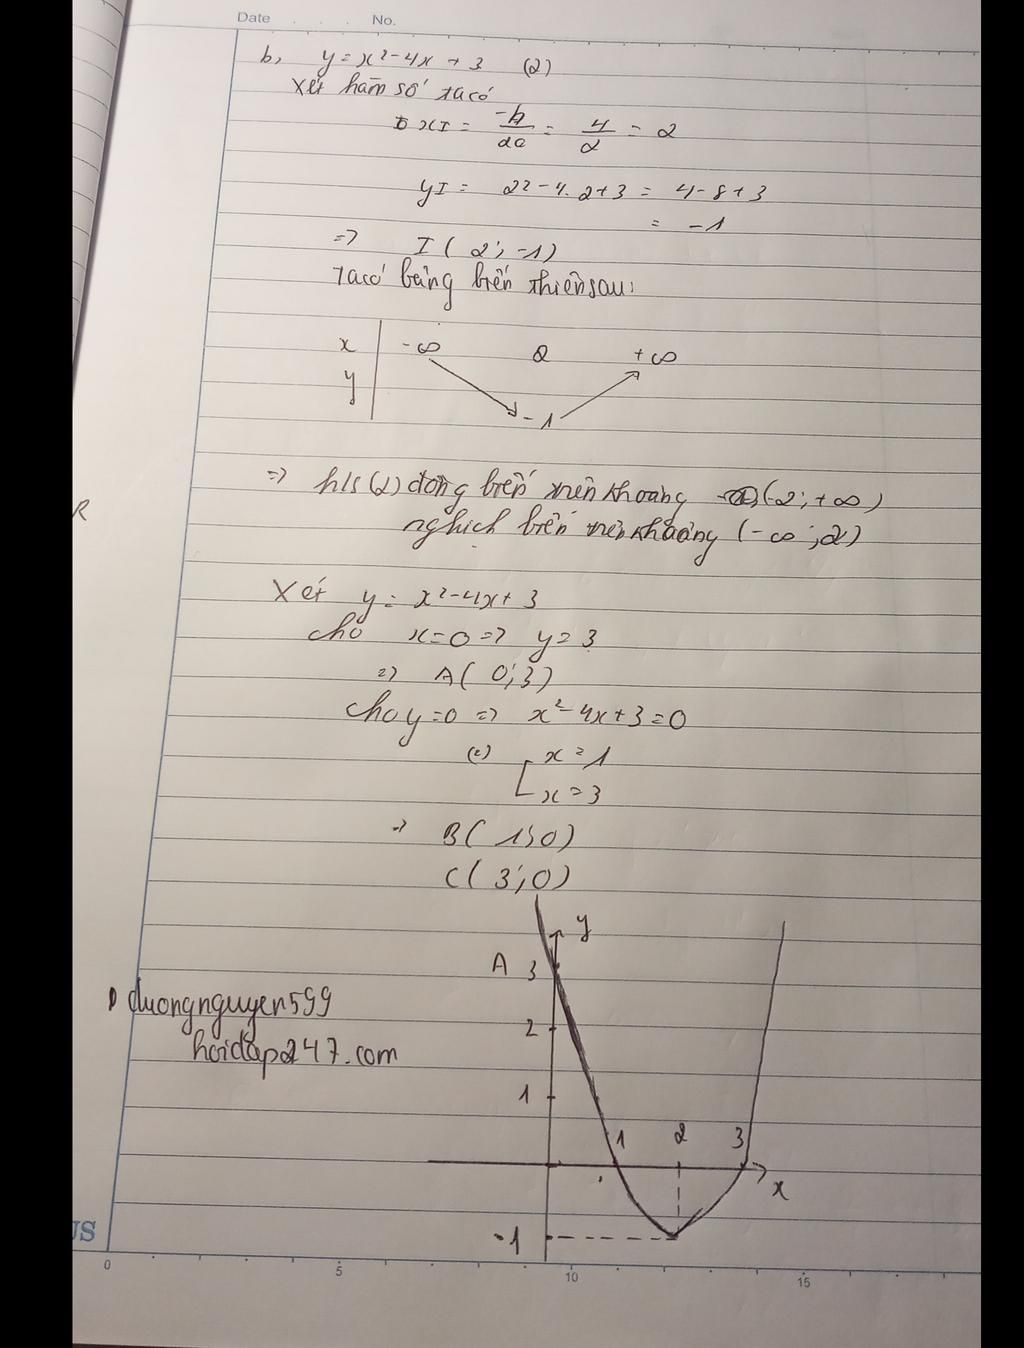 Date No.
b, y = x² - 4x + 3 (2)
Xét hàm số ta có
xI = -b/2a = 4/2 = 2
yI = 2² - 4.2 + 3 = 4 - 8 + 3
= -1
=> I ( 2 ; -1 )
Ta có bảng biến thiên sau:
x -∞ 2 +∞
y
-1
=> h/s (2) đồng biến trên khoảng (-2 ; +∞)
R
nghịch biến trên khoảng (-∞ ; 2)
Xét y = x² - 4x + 3
cho x = 0 => y = 3
=> A ( 0 ; 3 )
Cho y = 0 => x² - 4x + 3 = 0
(=) [ x = 1
x = 3
=> B ( 1 ; 0 )
C ( 3 ; 0 )
y
A 3
duongnguyen599
2
hoidap247.com
1
1 2 3
x
US
-1
0 5 10 15